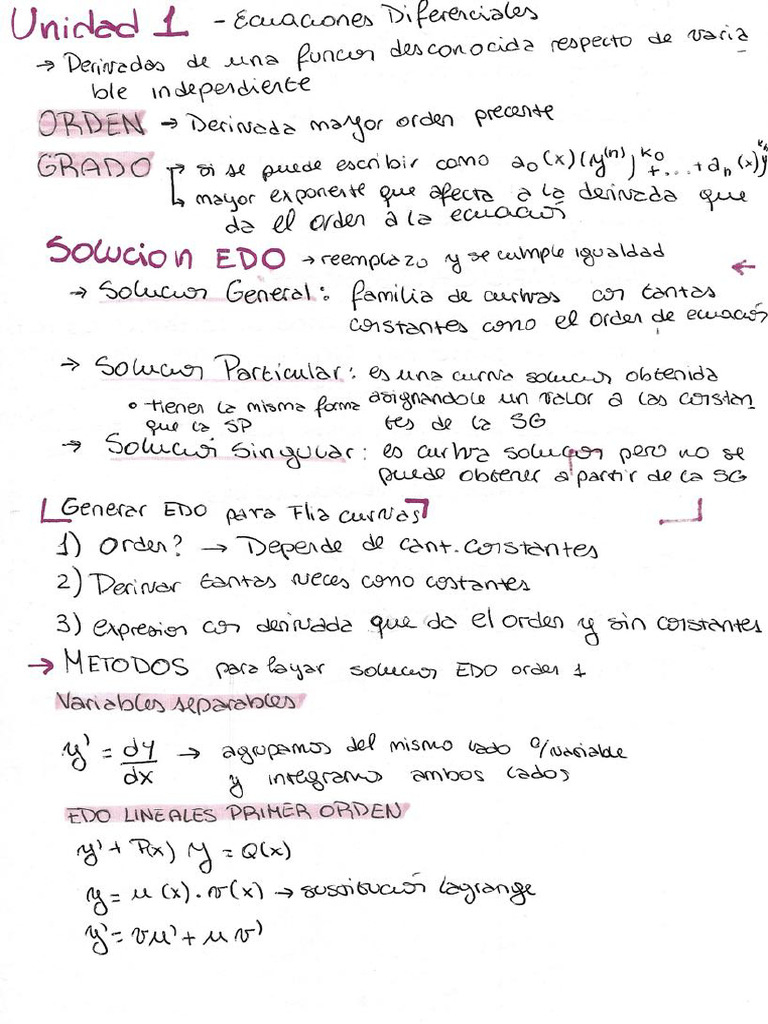 Unidad 1 - Ecuaciones Diferenciales
→ Derivadas de una funcion desconocida respecto de varia
ble independiente
ORDEN → Derivada mayor orden precente
GRADO → si se puede escribir como a₀(x)(y⁽ⁿ⁾)^k₀ + ... + aₙ(x)y^kₙ
↳ mayor exponente que afecta a la derivada que
da el orden a la ecuación
Solucion EDO → reemplazo y se cumple igualdad ←
→ Solucion General: familia de curvas con tantas
constantes como el orden de ecuación
→ Solucion Particular: es una curva solucion obtenida
• tienen la misma forma asignandole un valor a las constan
que la SP tes de la SG
→ Solución Singular: es curva solucion pero no se
puede obtener a partir de la SG
Generar EDO para Flia curvas
1) Orden? → Depende de cant. constantes
2) Derivar tantas veces como costantes
3) expresion con derivada que da el orden y sin constantes
→ METODOS para hayar solucion EDO orden 1
Variables separables
y' = dy/dx → agrupamos del mismo lado c/variable
y integramos ambos lados
EDO LINEALES PRIMER ORDEN
y' + P(x) y = Q(x)
y = u(x) . v(x) → sustitución lagrange
y' = vu' + uv'